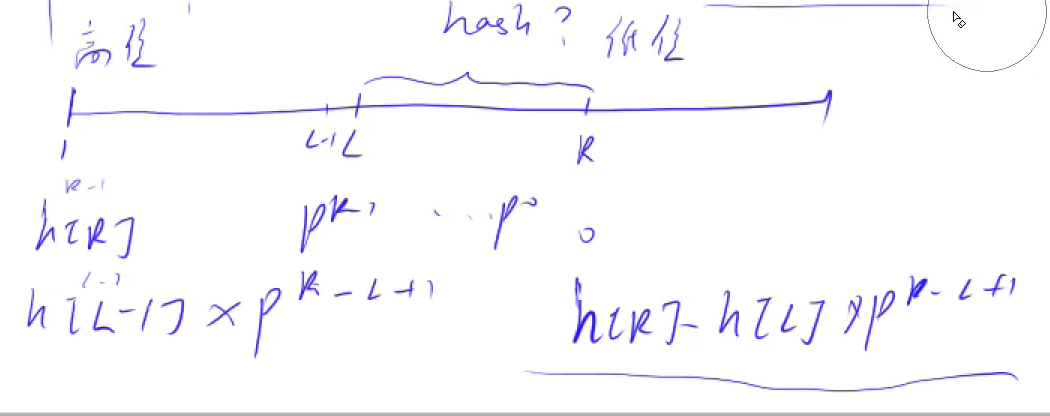 高位 hash? 低位
1 L-1 L R
R-1
h[R] p^{R-1} ... p^0 0
h[L-1] × p^{R-L+1} h[R] - h[L] × p^{R-L+1}